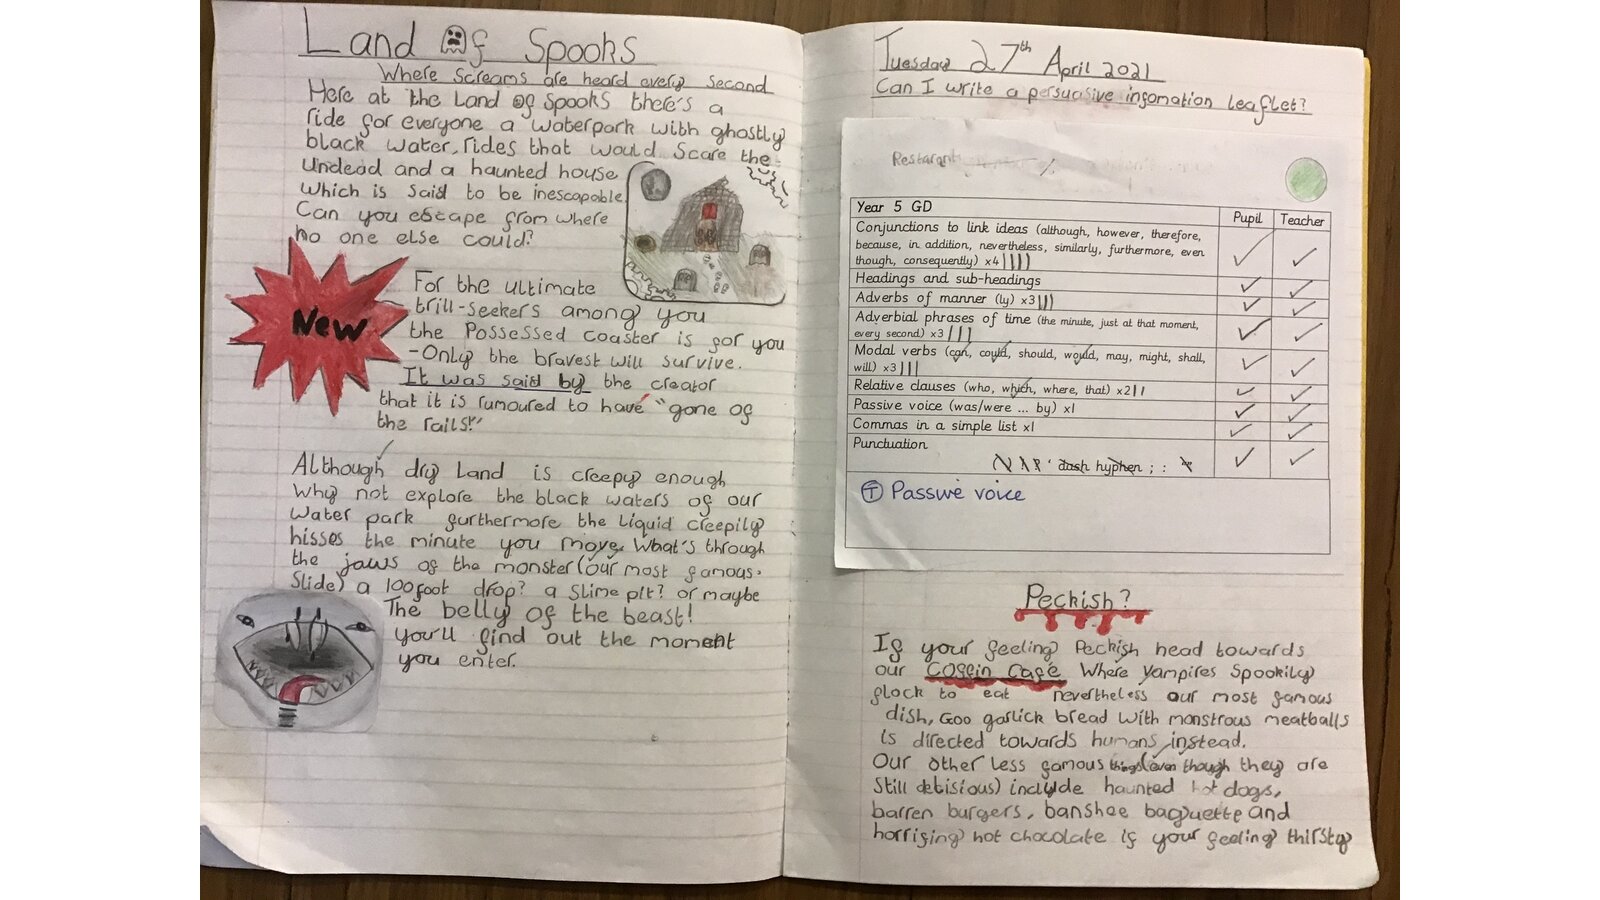 Land Of Spooks
Where screams are heard every second
Here at the Land Of Spooks there's a
ride for everyone a waterpark with ghostly
black water, rides that would scare the
undead and a haunted house
which is said to be inescapable
Can you escape from where
no one else could?
New
For the ultimate
trill-seekers among you
the Possessed coaster is for you
-Only the bravest will survive.
It was said by the creator
that it is rumoured to have "gone of
the rails!"
Although dry land is creepy enough
Why not explore the black waters of our
water park furthermore the liquid creepily
hisses the minute you move. What's through
the jaws of the monster (our most famous
Slide) a 100foot drop? a slime pit? or maybe
The belly of the beast!
you'll find out the moment
you enter.
Tuesday 27th April 2021
Can I write a persuasive infomation leaflet?
Restarant
Year 5 GD
Pupil
Teacher
Conjunctions to link ideas (although, however, therefore,
because, in addition, nevertheless, similarly, furthermore, even
though, consequently) x4
Headings and sub-headings
Adverbs of manner (ly) x3
Adverbial phrases of time (the minute, just at that moment,
every second) x3
Modal verbs (can, could, should, would, may, might, shall,
will) x3
Relative clauses (who, which, where, that) x2
Passive voice (was/were ... by) x1
Commas in a simple list x1
Punctuation
dash hyphen ; :
T Passive voice
Peckish?
If your feeling Peckish head towards
our Coffin Cafe Where Vampires Spookily
flock to eat nevertheless our most famous
dish, Goo garlick bread with monstrous meatballs
is directed towards humans instead.
Our other less famous things (even though they are
Still delisious) include haunted hot dogs,
barren burgers, banshee baguette and
horrifing hot chocolate if your feeling thirsty